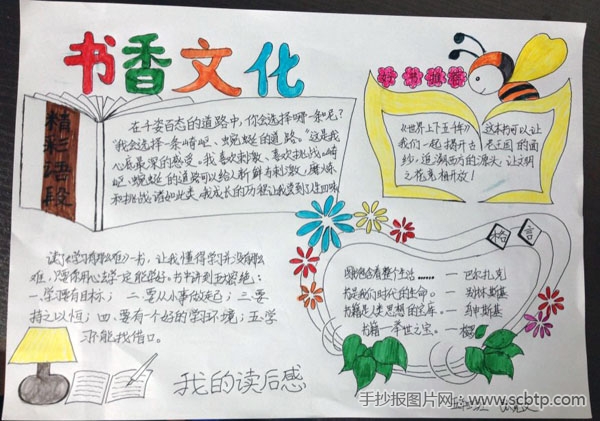 书香文化
好书推荐
精彩语段
在千姿百态的道路中，你会选择哪一条呢？
我会选择崎岖、蜿蜒的道路。"这是我
心底最深的感受。我喜欢刺激、喜欢挑战。崎
岖、蜿蜒的道路可以给人新鲜有刺激，磨炼
和挑战。诸如此类，我成长的历程让我受到了
《世界上下五千年》这本书可以让
我们一起揭开古老王国的面
纱，追溯西方的源头，让文明
之花竞相开放！
格言
看整个生活……——巴尔扎克
书是我们时代的生命。——别林斯基
书籍是人类思想的宝库。——乌申斯基
书籍——举世之宝。——梭罗
读了《学习有那么难》一书，让我懂得学习并没有那么
难，只要你用心去学一定能学好。书中讲到五秘绝：
一.学习要有目标；二.要从小事做起；三.要
持之以恒；四.要有一个好的学习环境；五.学
习不能找借口。
我的读后感
手抄报图片网：www.scbtp.com